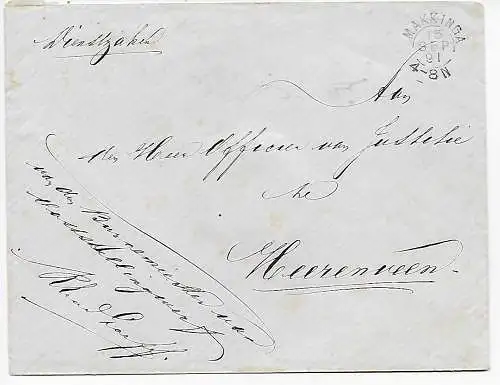 Dienstzaken
MAKKINGA
15
SEP
91
4-8N
Aan
den Heer Officier van Justitie
te
Heerenveen
van den Burgemeester van
Ooststellingwerf